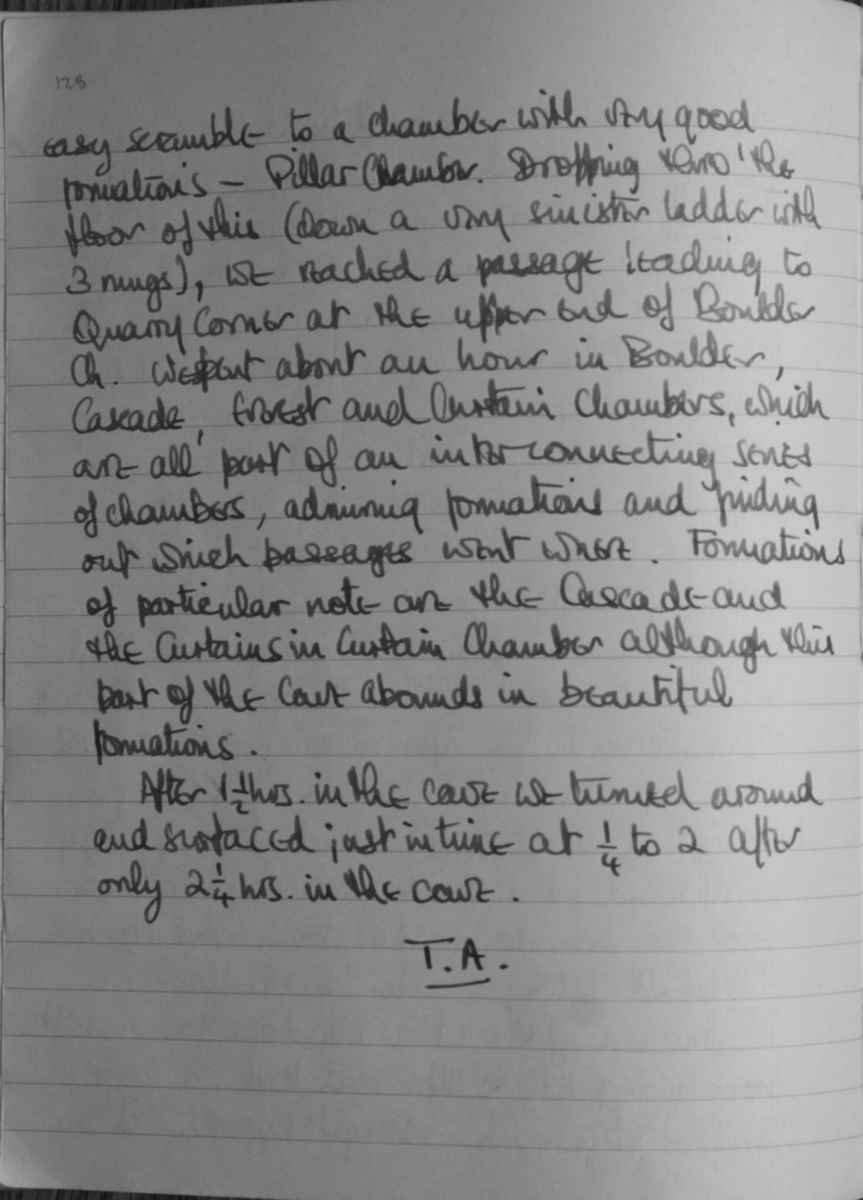 128
easy scramble to a chamber with very good
formations – Pillar Chamber. Dropping thro' the
floor of this (down a very sinister ladder with
3 rungs), we reached a passage leading to
Quarry Corner at the upper end of Boulder
Ch. We spent about an hour in Boulder,
Cascade, Forest and Curtain Chambers, which
are all part of an interconnecting series
of chambers, admiring formations and finding
out which passages went where. Formations
of particular note are the Cascade and
the Curtains in Curtain Chamber although this
part of the Cave abounds in beautiful
formations.
After 1½ hrs. in the cave we turned around
and surfaced just in time at ¼ to 2 after
only 2¼ hrs. in the cave.
T.A.